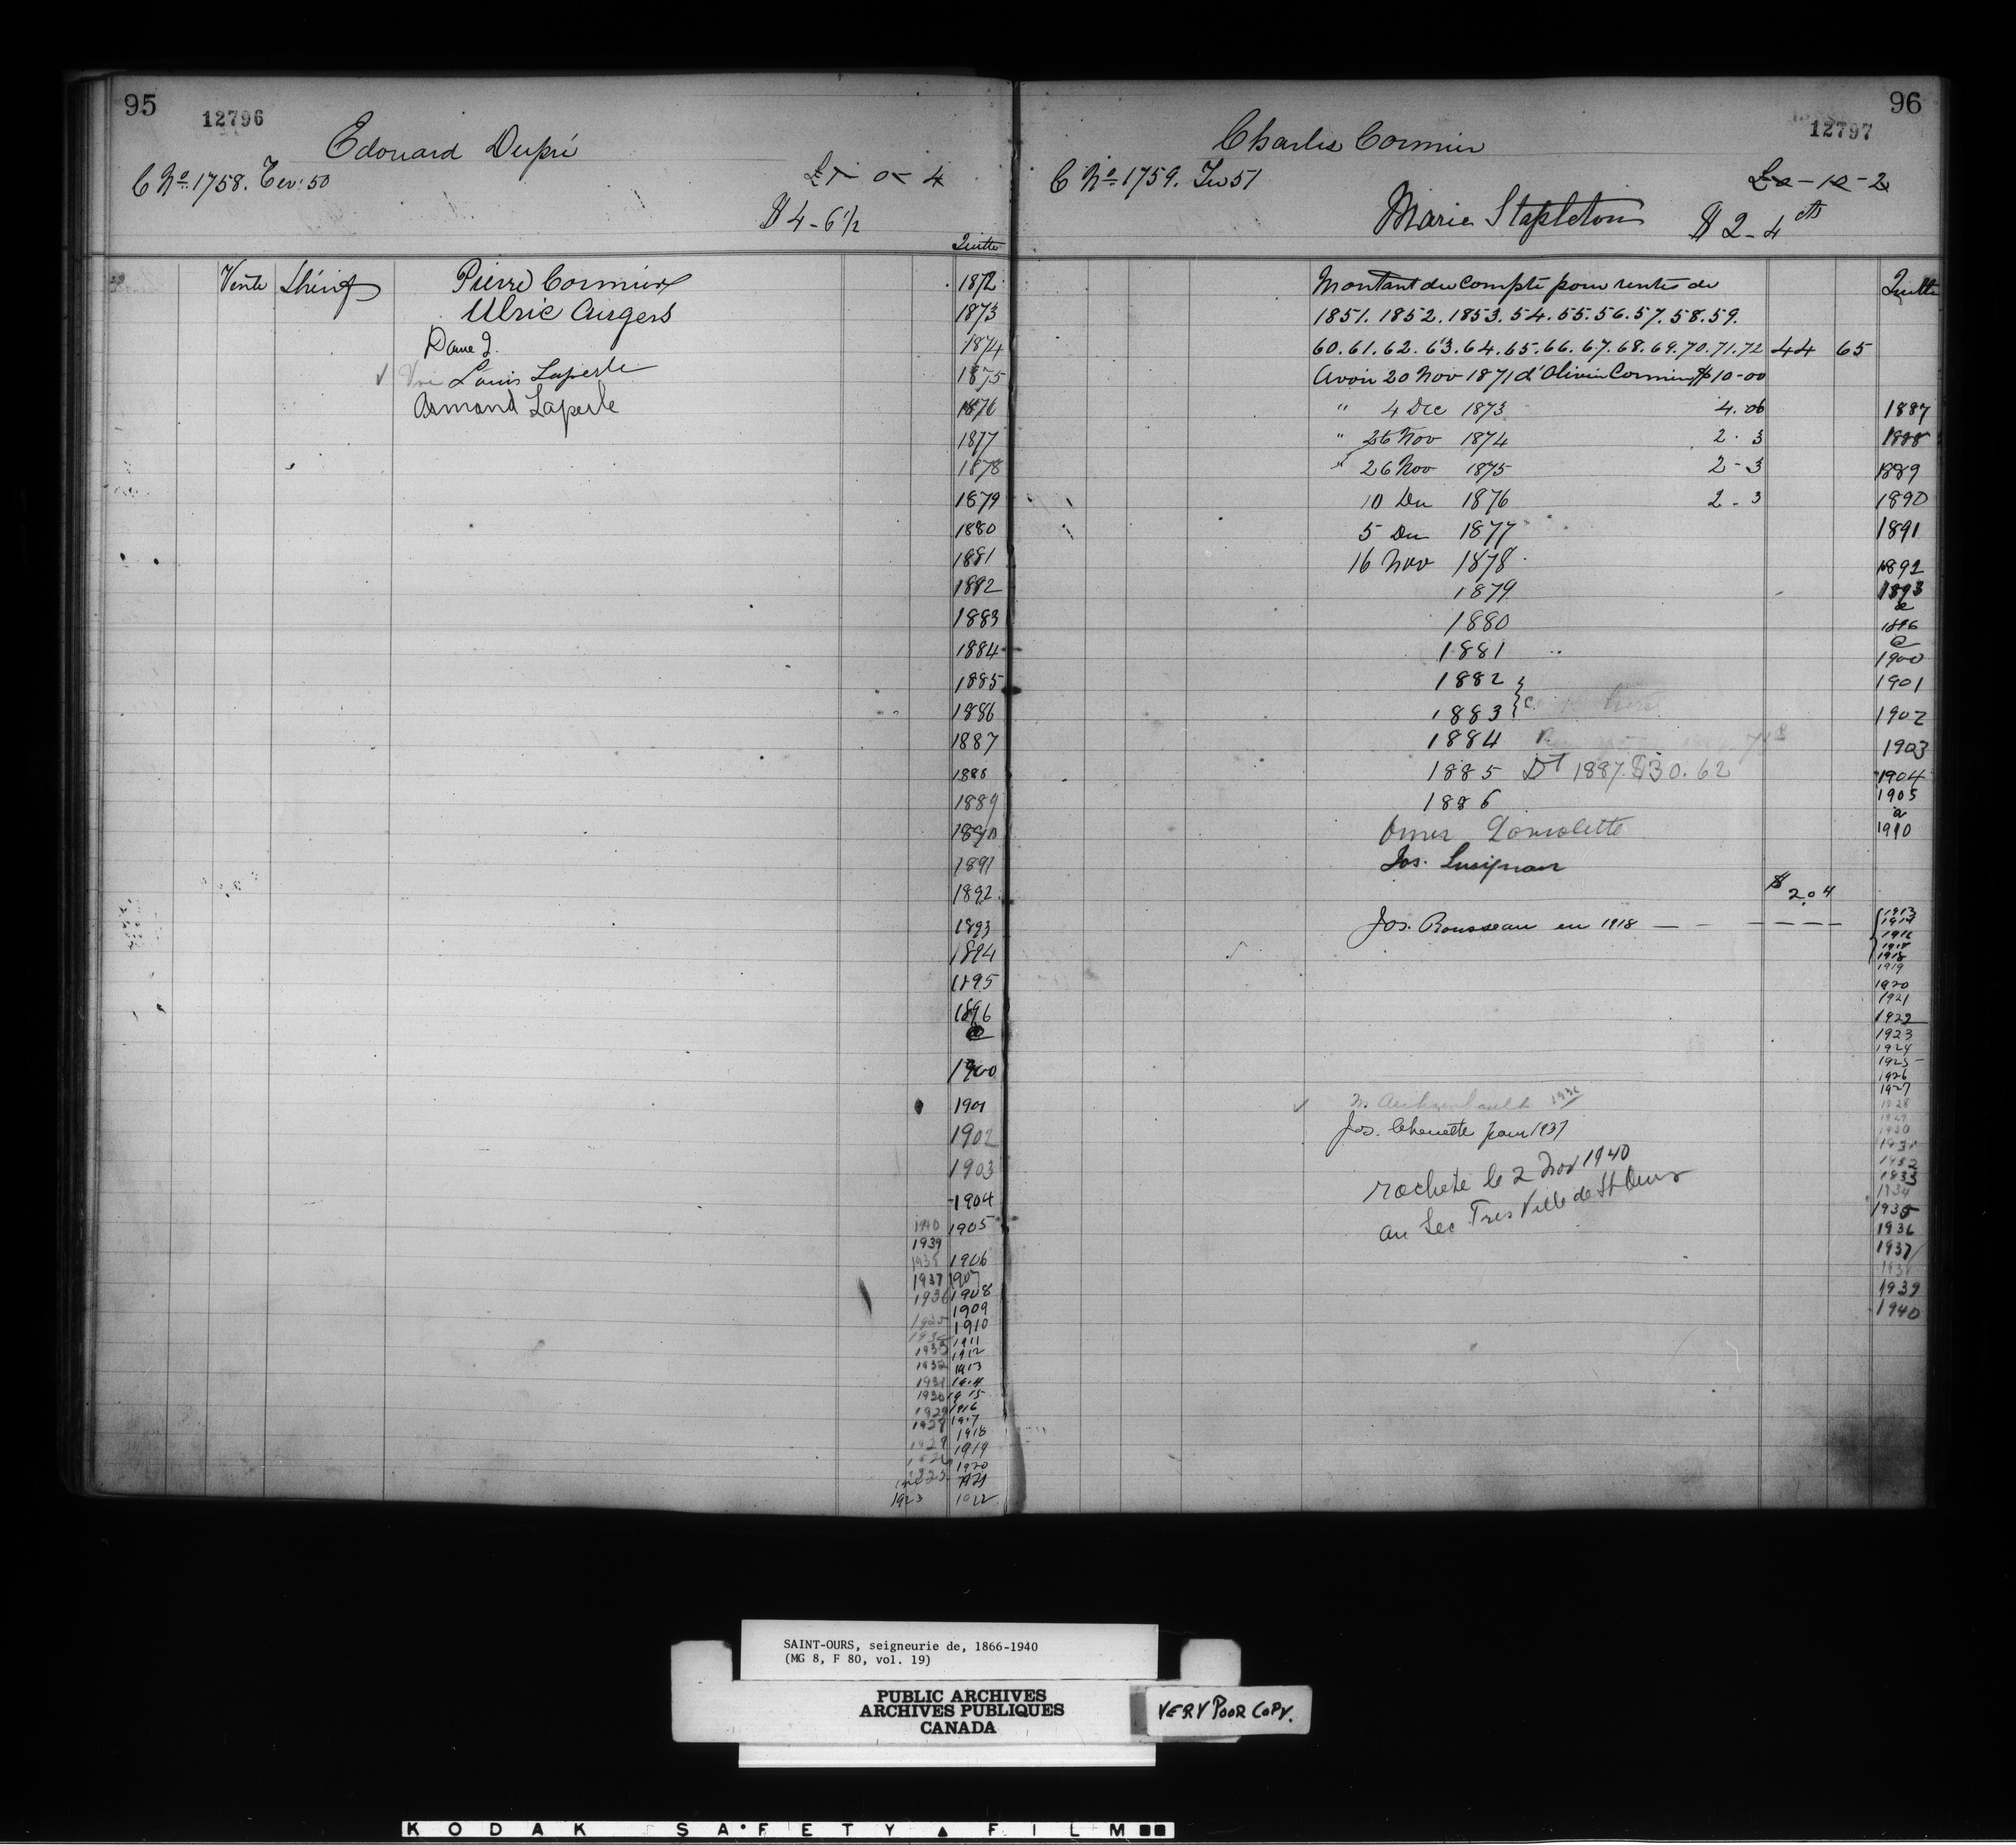 95
12796
Edouard Dupré
C No. 1758. Ter: 50
£1 - 0 - 4
$4 - 6 1/2
Quitte
Vente Shérif Pierre Cormier 1872
Ulric Augers 1873
Dame J. 1874
Vve Louis Laperle 1875
Armand Laperle 1876
1877
1878
1879
1880
1881
1882
1883
1884
1885
1886
1887
1888
1889
1890
1891
1892
1893
1894
1895
1896
a
1900
1901
1902
1903
1904
1940 1905
1939
1938 1906
1937 1907
1936 1908
1909
1910
1911
1933 1912
1932 1913
1931 1914
1930 1915
1929 1916
1928 1917
1918
1919
1920
1921
1923 1922
96
12797
Charles Cormier
C No. 1759. Ter 51
£0 - 10 - 2
Marie Stapleton
$2 - 4 cts
Quitte
Montant du compte pour rentes de
1851. 1852. 1853. 54. 55. 56. 57. 58. 59.
60. 61. 62. 63. 64. 65. 66. 67. 68. 69. 70. 71. 72 44 65
Avoir 20 Nov 1871 d'Olivier Cormier $10-00
" 4 Dec 1873 4.06 1887
" 26 Nov 1874 2. 3 1888
" 26 Nov 1875 2-3 1889
10 Dec 1876 2-3 1890
5 Dec 1877 1891
16 Nov 1878 1892
1879 1893
a
1880 1896
a
1881 1900
1882 1901
1883 1902
1884 1903
1885 Dt 1887. $30.62 1904
1886 1905
a
Omer 1910
Jos. Lusignan
$2.04
Jos. Rousseau en 1918 1913
1914
1916
1917
1918
1919
1920
1921
1922
1923
1924
1925
1926
1927
1928
1929
1930
1931
1932
1933
1934
1935
1936
1937
1938
1939
1940
1936
Jos. Chouette pour 1937
racheté le 2 Nov 1940
au Sec Tres Ville de St Ours
SAINT-OURS, seigneurie de, 1866-1940
(MG 8, F 80, vol. 19)
PUBLIC ARCHIVES
ARCHIVES PUBLIQUES
CANADA
VERY POOR COPY.
KODAK SAFETY FILM